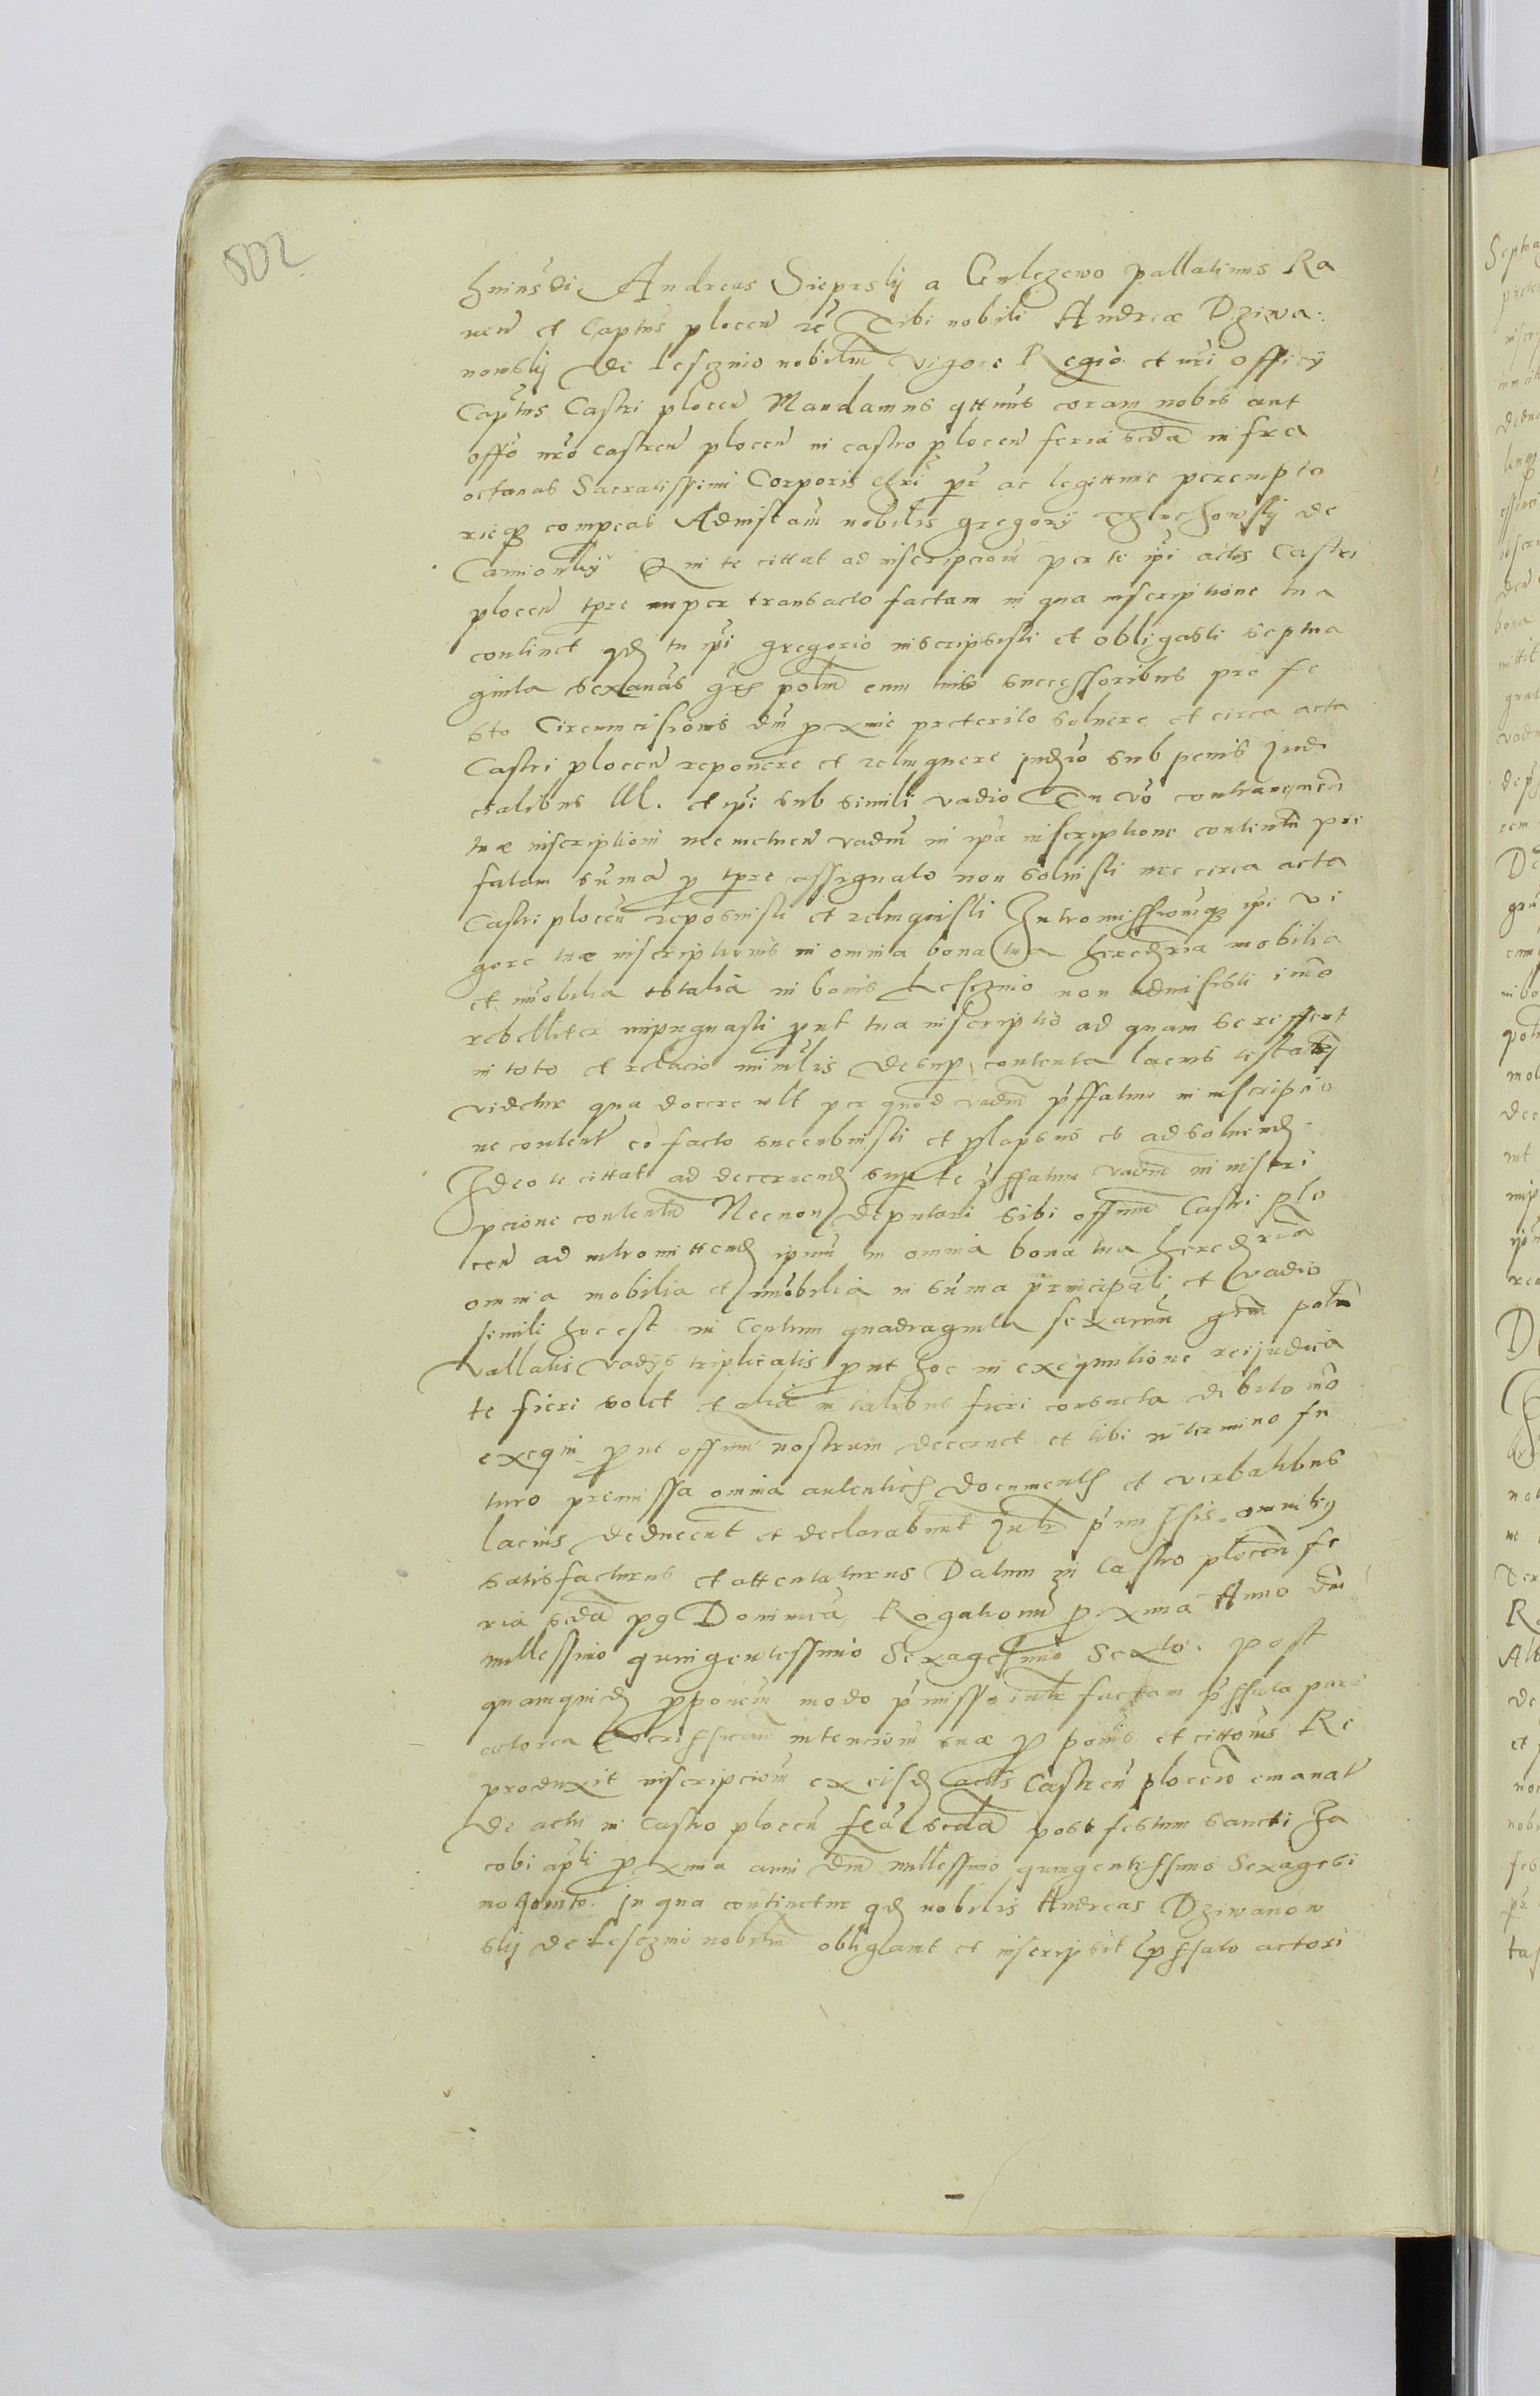 802
huiusdi Andreas Sieprskij a Gulczewo pallatinus Ra
ven et Captus plocen re Tibi nobili Andreæ Dziwa.
nowskij de Lesczino nobilem vigore Regio et nri officij
Captus Castri plocen Mandamus qttnus coram nobis aut
offo nro castren plocen in castro plocen feria scda infra
octauas Sacratissimi Corporis chri pr ac legittime perempto
rieq compeas Ad instam nobilis gregorij de
Camionkij Qui te cittat ad inscripciom per te ipi actis Castri
plocen tpre nuper transacto factam in qua inscriptione tua
continet qd tu ipi gregorio inscripsisti et obligasti septua
ginta sexanas gr polm cum tuis successoribus pro fe
sto Circumcisionis dni pxime preterito soluere et circa acta
Castri plocen reponere et relinquere sub penis Judi
cialibus et ipi sub simili vadio Tu vo contrauenien
tuæ inscriptioni nec metuen vadm in ipa inscriptione contentu pre
fatam suma p tpre assignato non soluisti nec circa acta
Castri plocen reposuisti et relinquisti Intromissionemq ipi vi
gore tuæ inscriptionis in omnia bona tua heredria mobilia
et imobilia totalia in bonis Lesczino non admisisti imo
rebelliter inpugnasti prout tua inscriptio ad quam se reffert
in toto et relacio desup contenta lacius
videtur qua docere vlt per quod vadm pffatum in inscriptio
ne content eo facto succubuisti et plapsus es ad soluend
Ideo te cittat ad decernend sup te pffatum vadm in inscri
pcione contentu Necnon deputari sibi offium Castri plo
cen ad intromittend ipsum in omnia bona tua heredria
omnia mobilia et imobilia in suma principali et vadio
simili hoc est in Centum quadraginta sexanm grm polm
vallatis vadijs triplicatis prout hoc in exequutione rei judica
te fieri solet et alia in talibus fieri consueta debito mo
exequi prout offium nostrum decernet et tibi in termino fu
turo premissa omnia autenticis documentis et verbalibus
lacius deducent et declarabunt Jur pmissis omnibus
satisfacturus et attentaturus Datum in Castro plocen fe
ria scda pq Dominica Rogationu pxima Anno dni
millessimo quingentessimo Sexagesimo Sexto. Post
quamquid pponem modo pmisso factam pffata pars
actorea intenciom suæ pponis et cittonis Re
produxit inscripciom ex eisd actis Castren plocen emanat
de actu in Castro plocen feria scda post festum sancti Ja
cobi apli pxima anni dni millessimo quingentessimo Sexagesi
mo quinto. In qua continetur qd nobilis Andreas Dziwanow
skij de Lesczino nobilem obligauit et inscripsit pffato actori